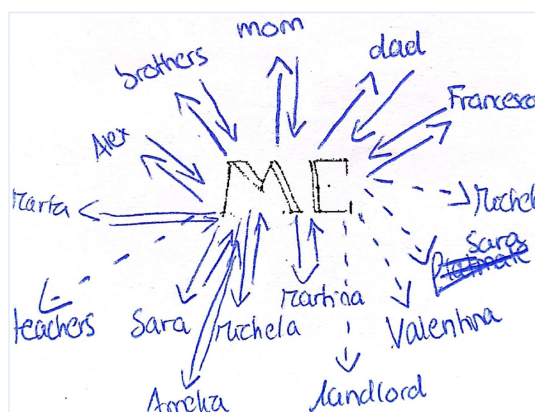 mom
dad
brothers
Francesco
Alex
ME
Marta
Michel
Sara
teachers
Sara
Michela
Martina
Valentina
Amelia
landlord